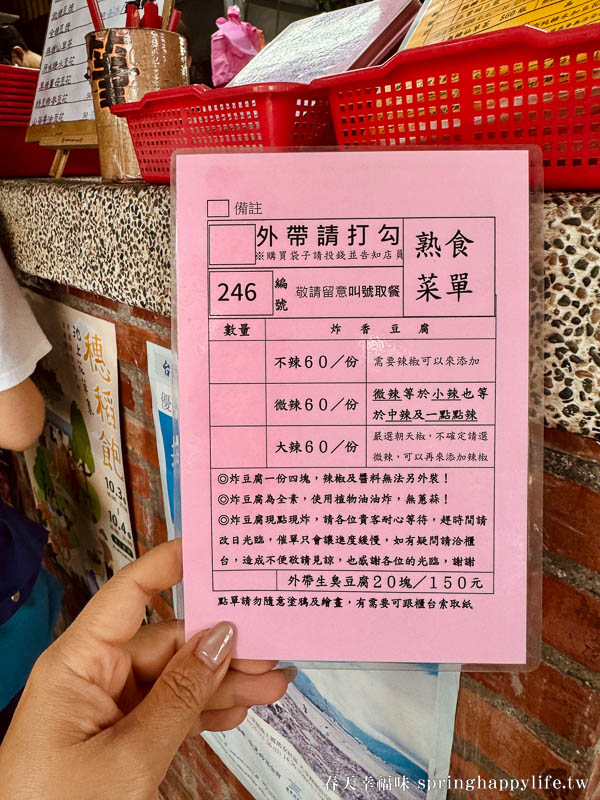 備註
外帶請打勾
※購買袋子請投錢並告知店員
熟食
菜單
246
編號
敬請留意叫號取餐
數量
炸香豆腐
不辣60／份
需要辣椒可以來添加
微辣60／份
微辣等於小辣也等
於中辣及一點點辣
大辣60／份
嚴選朝天椒，不確定請選
微辣，可以再來添加辣椒
◎炸豆腐一份四塊，辣椒及醬料無法另外裝！
◎炸豆腐為全素，使用植物油油炸，無蔥蒜！
◎炸豆腐現點現炸，請各位貴客耐心等待，趕時間請
改日光臨，催單只會讓進度緩慢，如有疑問請洽櫃
台，造成不便敬請見諒，也感謝各位的光臨，謝謝
外帶生臭豆腐20塊／150元
點單請勿隨意塗鴉及繪畫，有需要可跟櫃台索取紙
穗稻飽
10.3
10.4
春天幸福味 springhappylife.tw